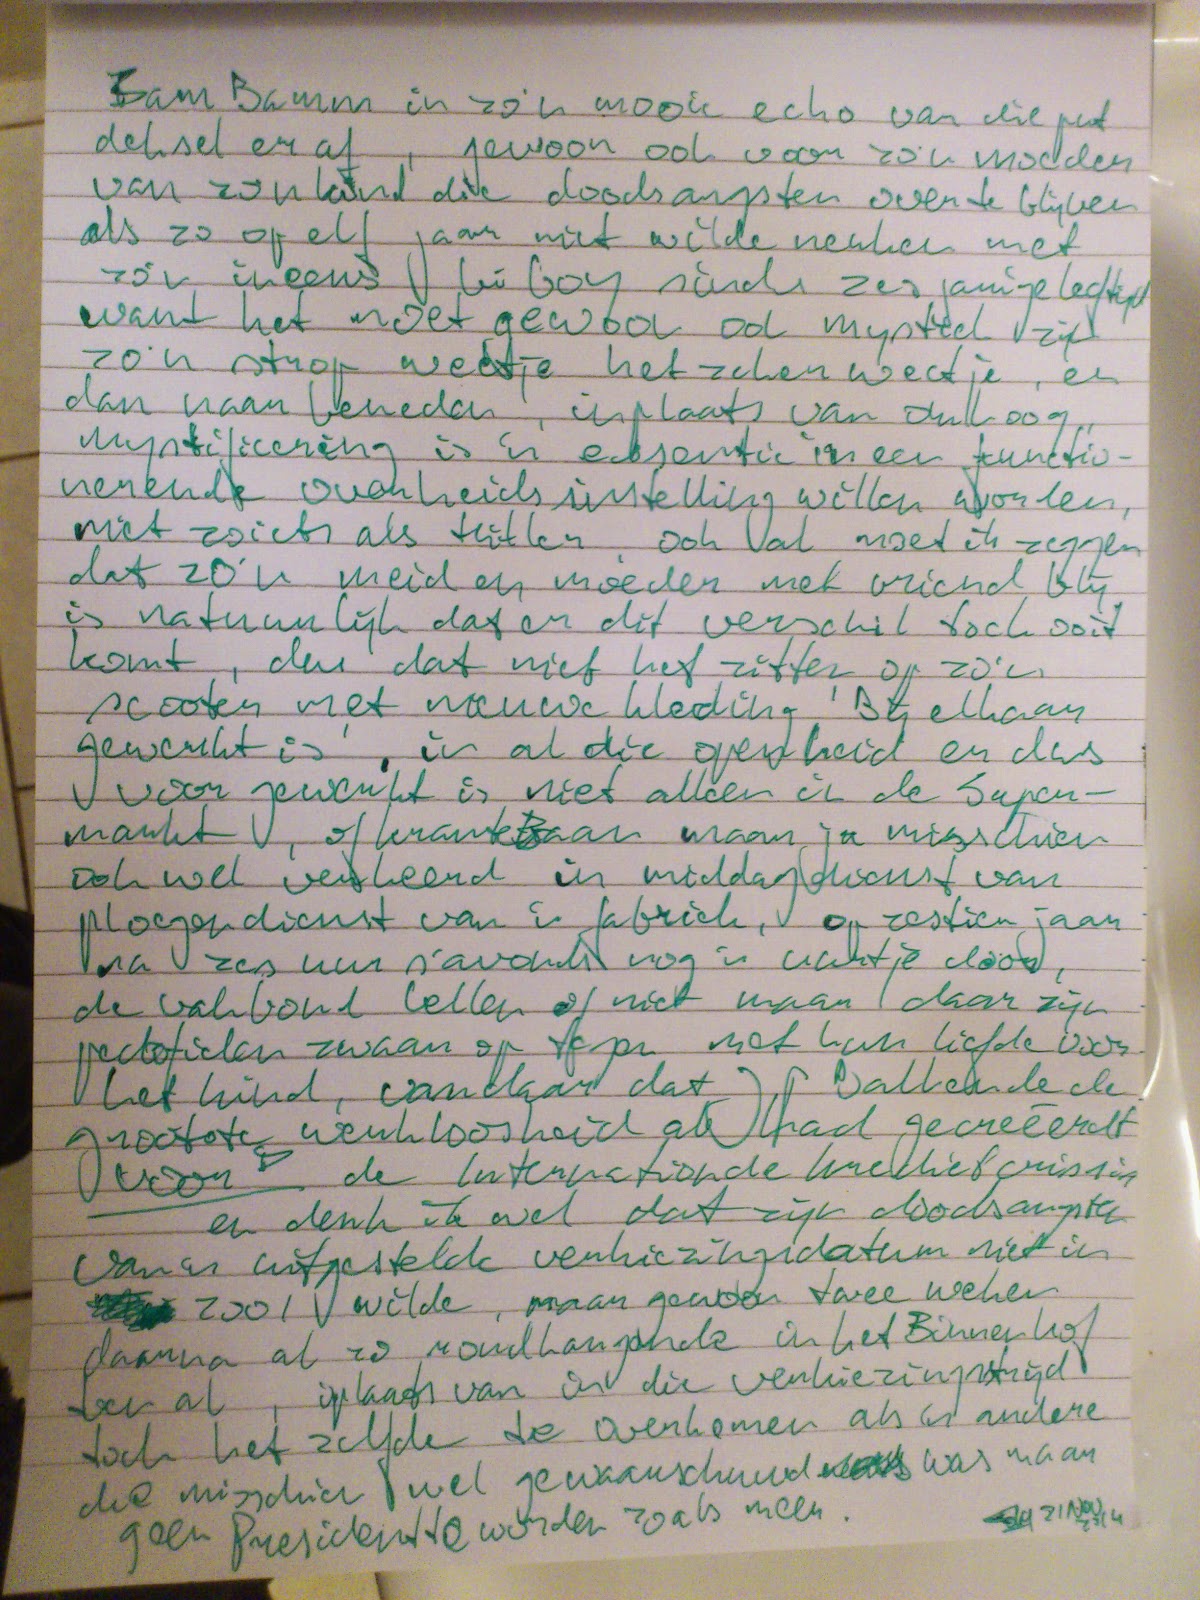 Bam Bamm in zo'n mooie echo van die put
deksel er af, gewoon ook voor zo'n moeder
van zo'n kind die doodsangsten over te blijven
als zo op elf jaar niet wilde neuken met
zo'n ineens
want het moet gewoon ook mystiek zijn
zo'n strop weetje het zeker weetje, en
dan naar beneden, inplaats van omhoog,,
mystificering is 'n essentie in een functio-
nerende overheidsinstelling willen worden,
niet zoiets als Hitler, ook al moet ik zeggen
dat zo'n meid en moeder met vriend blij
is natuurlijk dat er dit verschil toch ooit
komt, dus dat niet het zitten op zo'n
scooter met nieuwe kleding! Bij elkaar
gewerkt is, in al die openheid en dus
voor gewerkt is niet alleen in de Super-
markt, of krantebaan maar ja misschien
ook wel verkeerd in middagdienst van
ploegendienst van 'n fabriek, op zestien jaar
na zes uur s'avonds nog 'n uurtje door,
de vakbond bellen of niet maar daar zijn
pedofielen zwaar op tegen met hun liefde voor
het kind, vandaar dat J.P Balkende de
grootste werkloosheid al had gecreëerdt
voor de Internationde kredietcrissis
en denk ik wel dat zijn doodsangste
van 'n uitgestelde verkiezingsdatum niet in
2001 wilde, maar gewoon twee weken
daarna al zo rondhangende in het Binnenhof
ben al, inplaats van in die verkiezingstrijd
toch het zelfde te overkomen als 'n andere
die misschien wel gewaarschuwd was maar
geen Presidentte worden zoals meer.
21 NOV